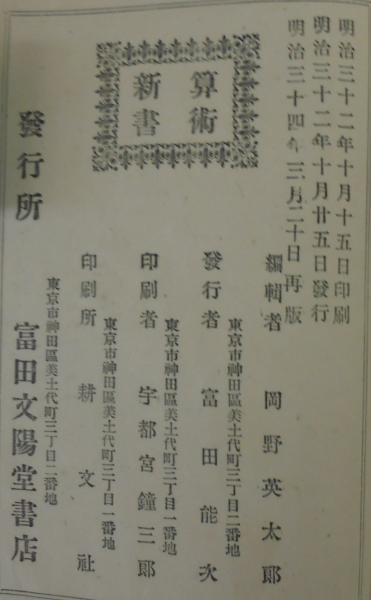 明治三十二年十月十五日印刷
明治三十二年十月廿五日發行
明治三十四年三月二十日再版
算術
新書
編輯者 岡野英太郎
東京市神田區美土代町三丁目二番地
發行者 富田能次
東京市神田區美土代町三丁目一番地
印刷者 宇都宮鐘三郎
東京市神田區美土代町三丁目一番地
印刷所 耕文社
東京市神田區美土代町三丁目二番地
發行所 富田文陽堂書店